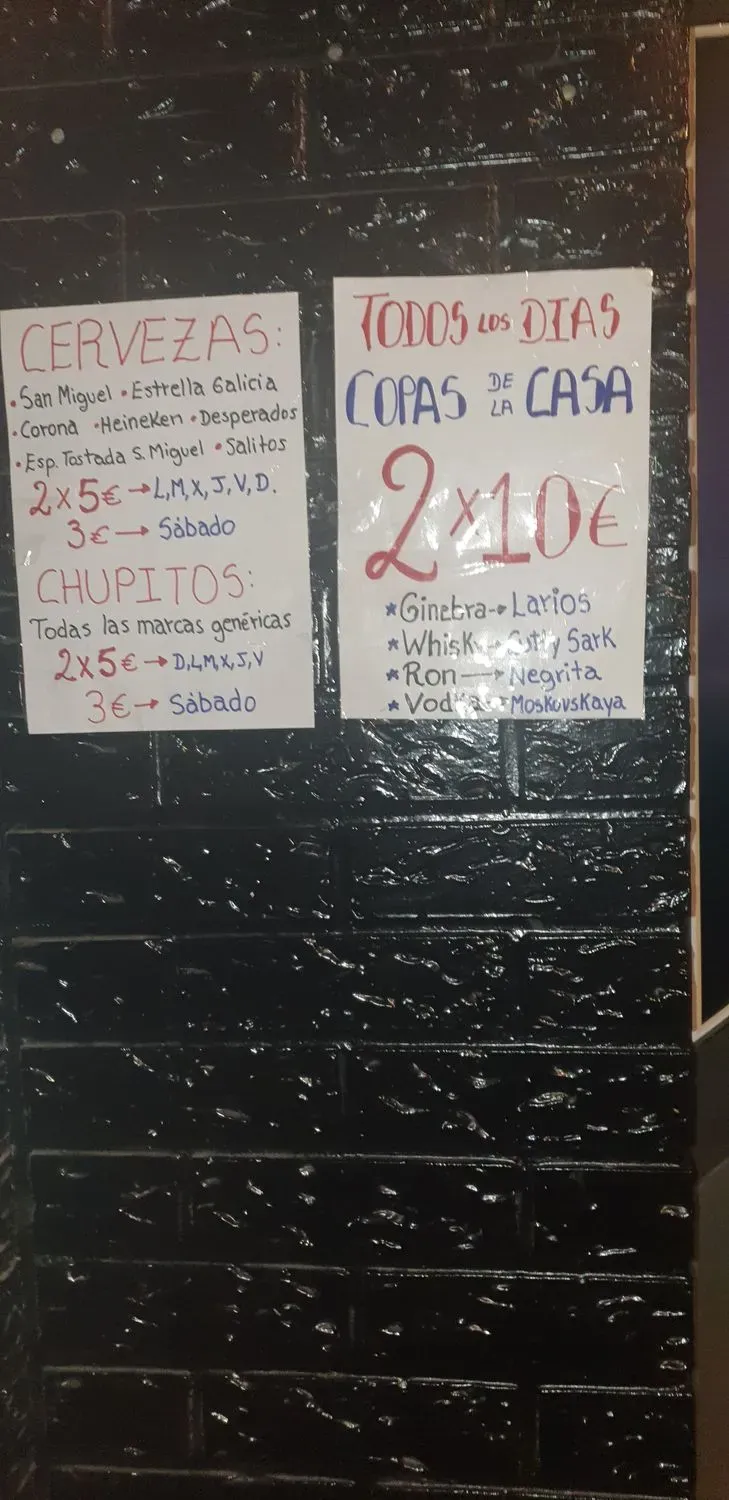 CERVEZAS:
• San Miguel • Estrella Galicia
• Corona • Heineken • Desperados
• Esp. Tostada S. Miguel • Salitos
2x5€ → L,M,X,J,V,D.
3€ → Sábado
CHUPITOS:
Todas las marcas genéricas
2x5€ → D,L,M,X,J,V
3€ → Sábado
TODOS LOS DIAS
COPAS DE LA CASA
2x10€
* Ginebra → Larios
* Whisky → Cutty Sark
* Ron → Negrita
* Vodka → Moskovskaya